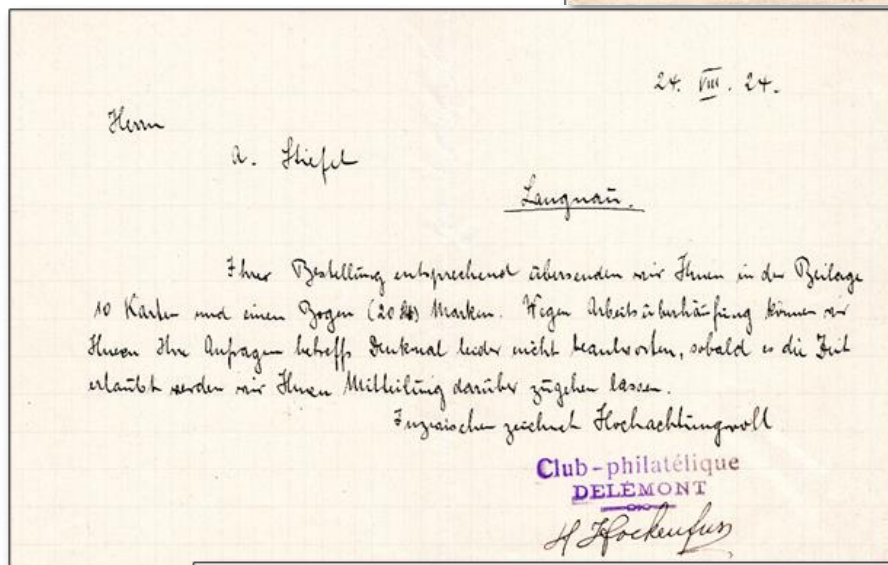 24. VIII. 24.
Herrn
A. Stiefel
Langnau.
Ihrer Bestellung entsprechend übersenden wir Ihnen in der Beilage
10 Karten und einen Bogen (20 St) Marken. Wegen Arbeitsüberhäufung können wir
Ihnen Ihre Anfragen betreffs Denkmal leider nicht beantworten, sobald es die Zeit
erlaubt werden wir Ihnen Mitteilung darüber zugehen lassen.
Inzwischen zeichnet Hochachtungsvoll
Club-philatélique
DELÉMONT
H Hockenfuss